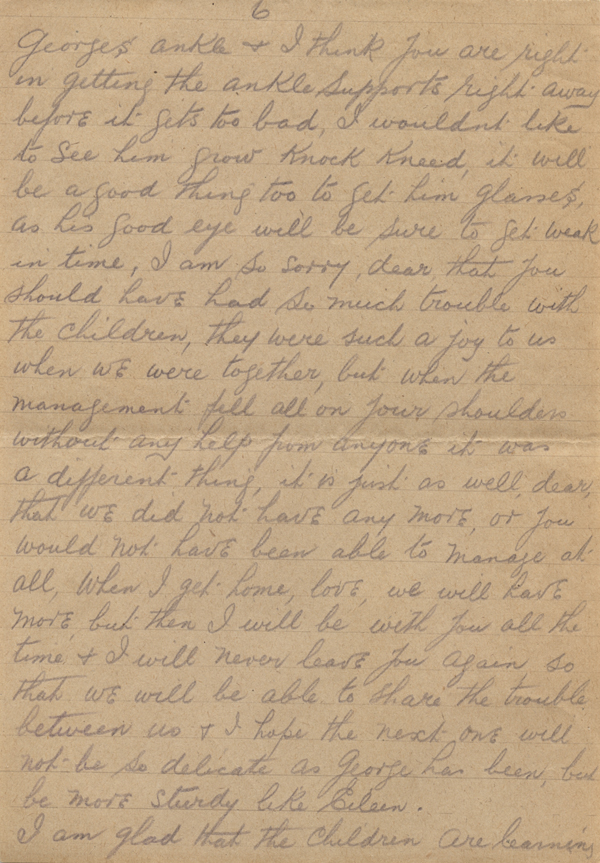 6
Georges ankle & I think you are right
in getting the ankle supports right away
before it gets too bad, I wouldnt like
to see him grow knock kneed, it will
be a good thing too to get him glasses,
as his good eye will be sure to get weak
in time, I am so sorry, dear, that you
should have had so much trouble with
the children, they were such a joy to us
when we were together, but when the
management fell all on your shoulders
without any help from anyone it was
a different thing, it is just as well, dear,
that we did not have any more, or you
would not have been able to manage at
all, when I get home, love, we will have
more, but then I will be with you all the
time & I will never leave you again so
that we will be able to share the trouble
between us & I hope the next one will
not be so delicate as George has been, but
be more sturdy like Eileen.
I am glad that the children are learning